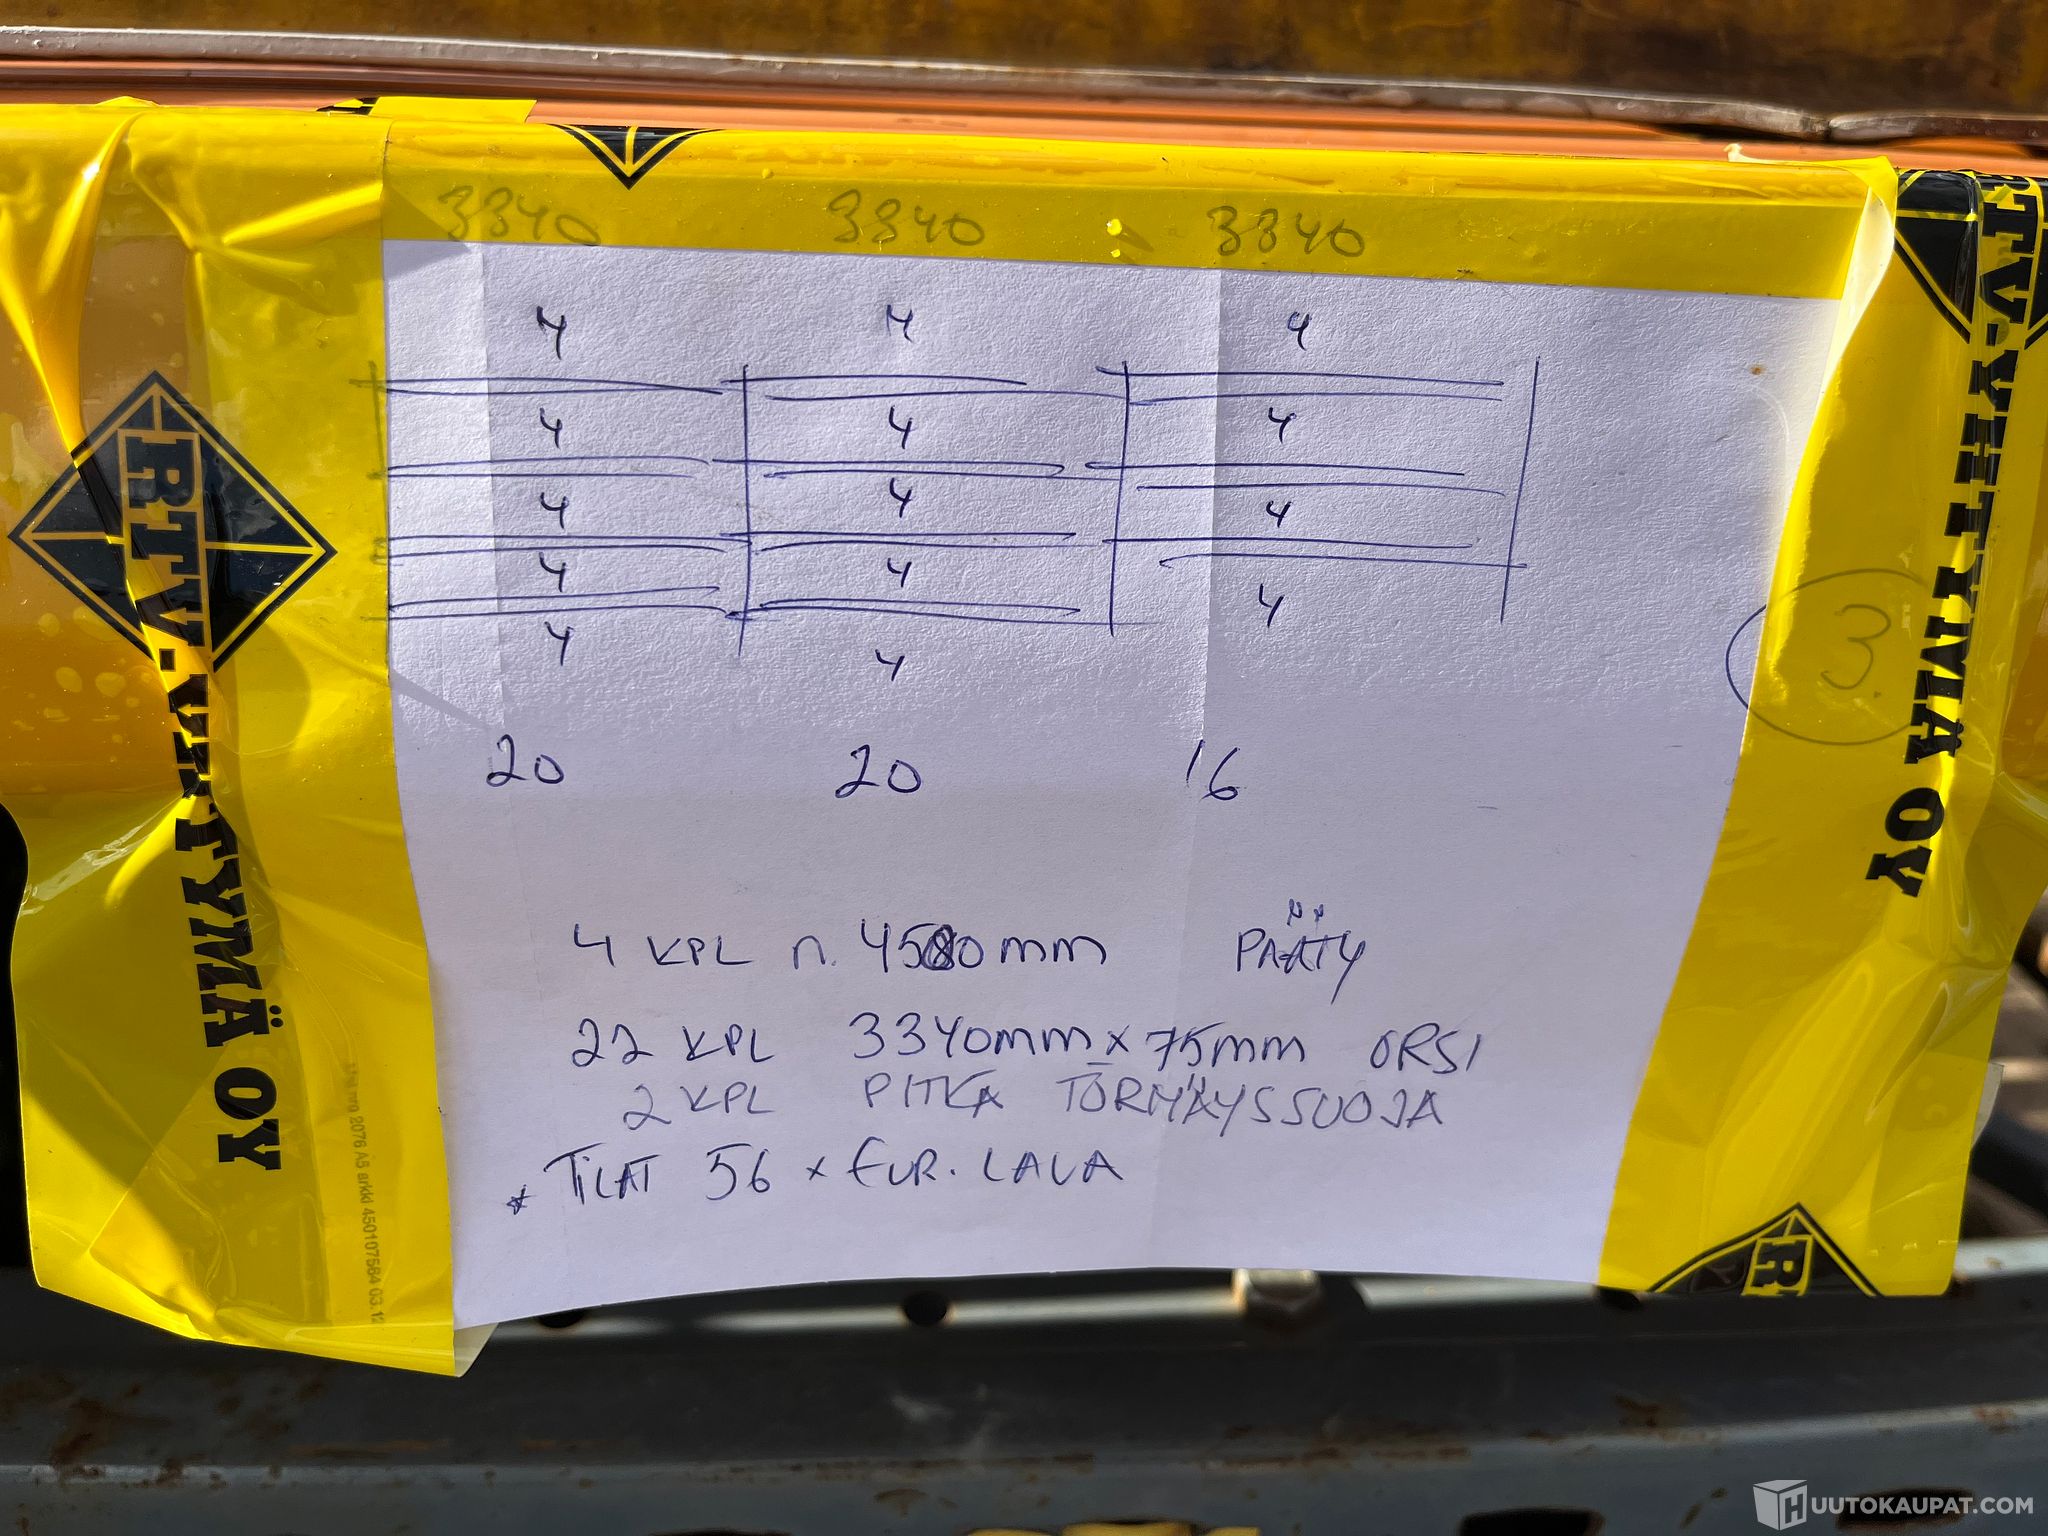 3340 3340 3340
4 4 4
4 4 4
4 4 4
4 4 4
4 4
20 20 16
3.
4 KPL n. 4580mm PÄÄTY
22 KPL 3340mm x 75mm ORSI
2 KPL PITKÄ TÖRMÄYSSUOJA
* TILAT 56 x EUR. LAVA
RTV-YHTYMÄ OY
RTV-YHTYMÄ OY
R
2076 A5 arkki 450107584 03.12
HUUTOKAUPAT.COM